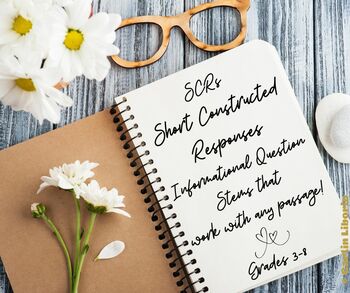 SCRs
Short Constructed
Responses
Informational Question
Stems that
work with any passage!
Grades 3-8